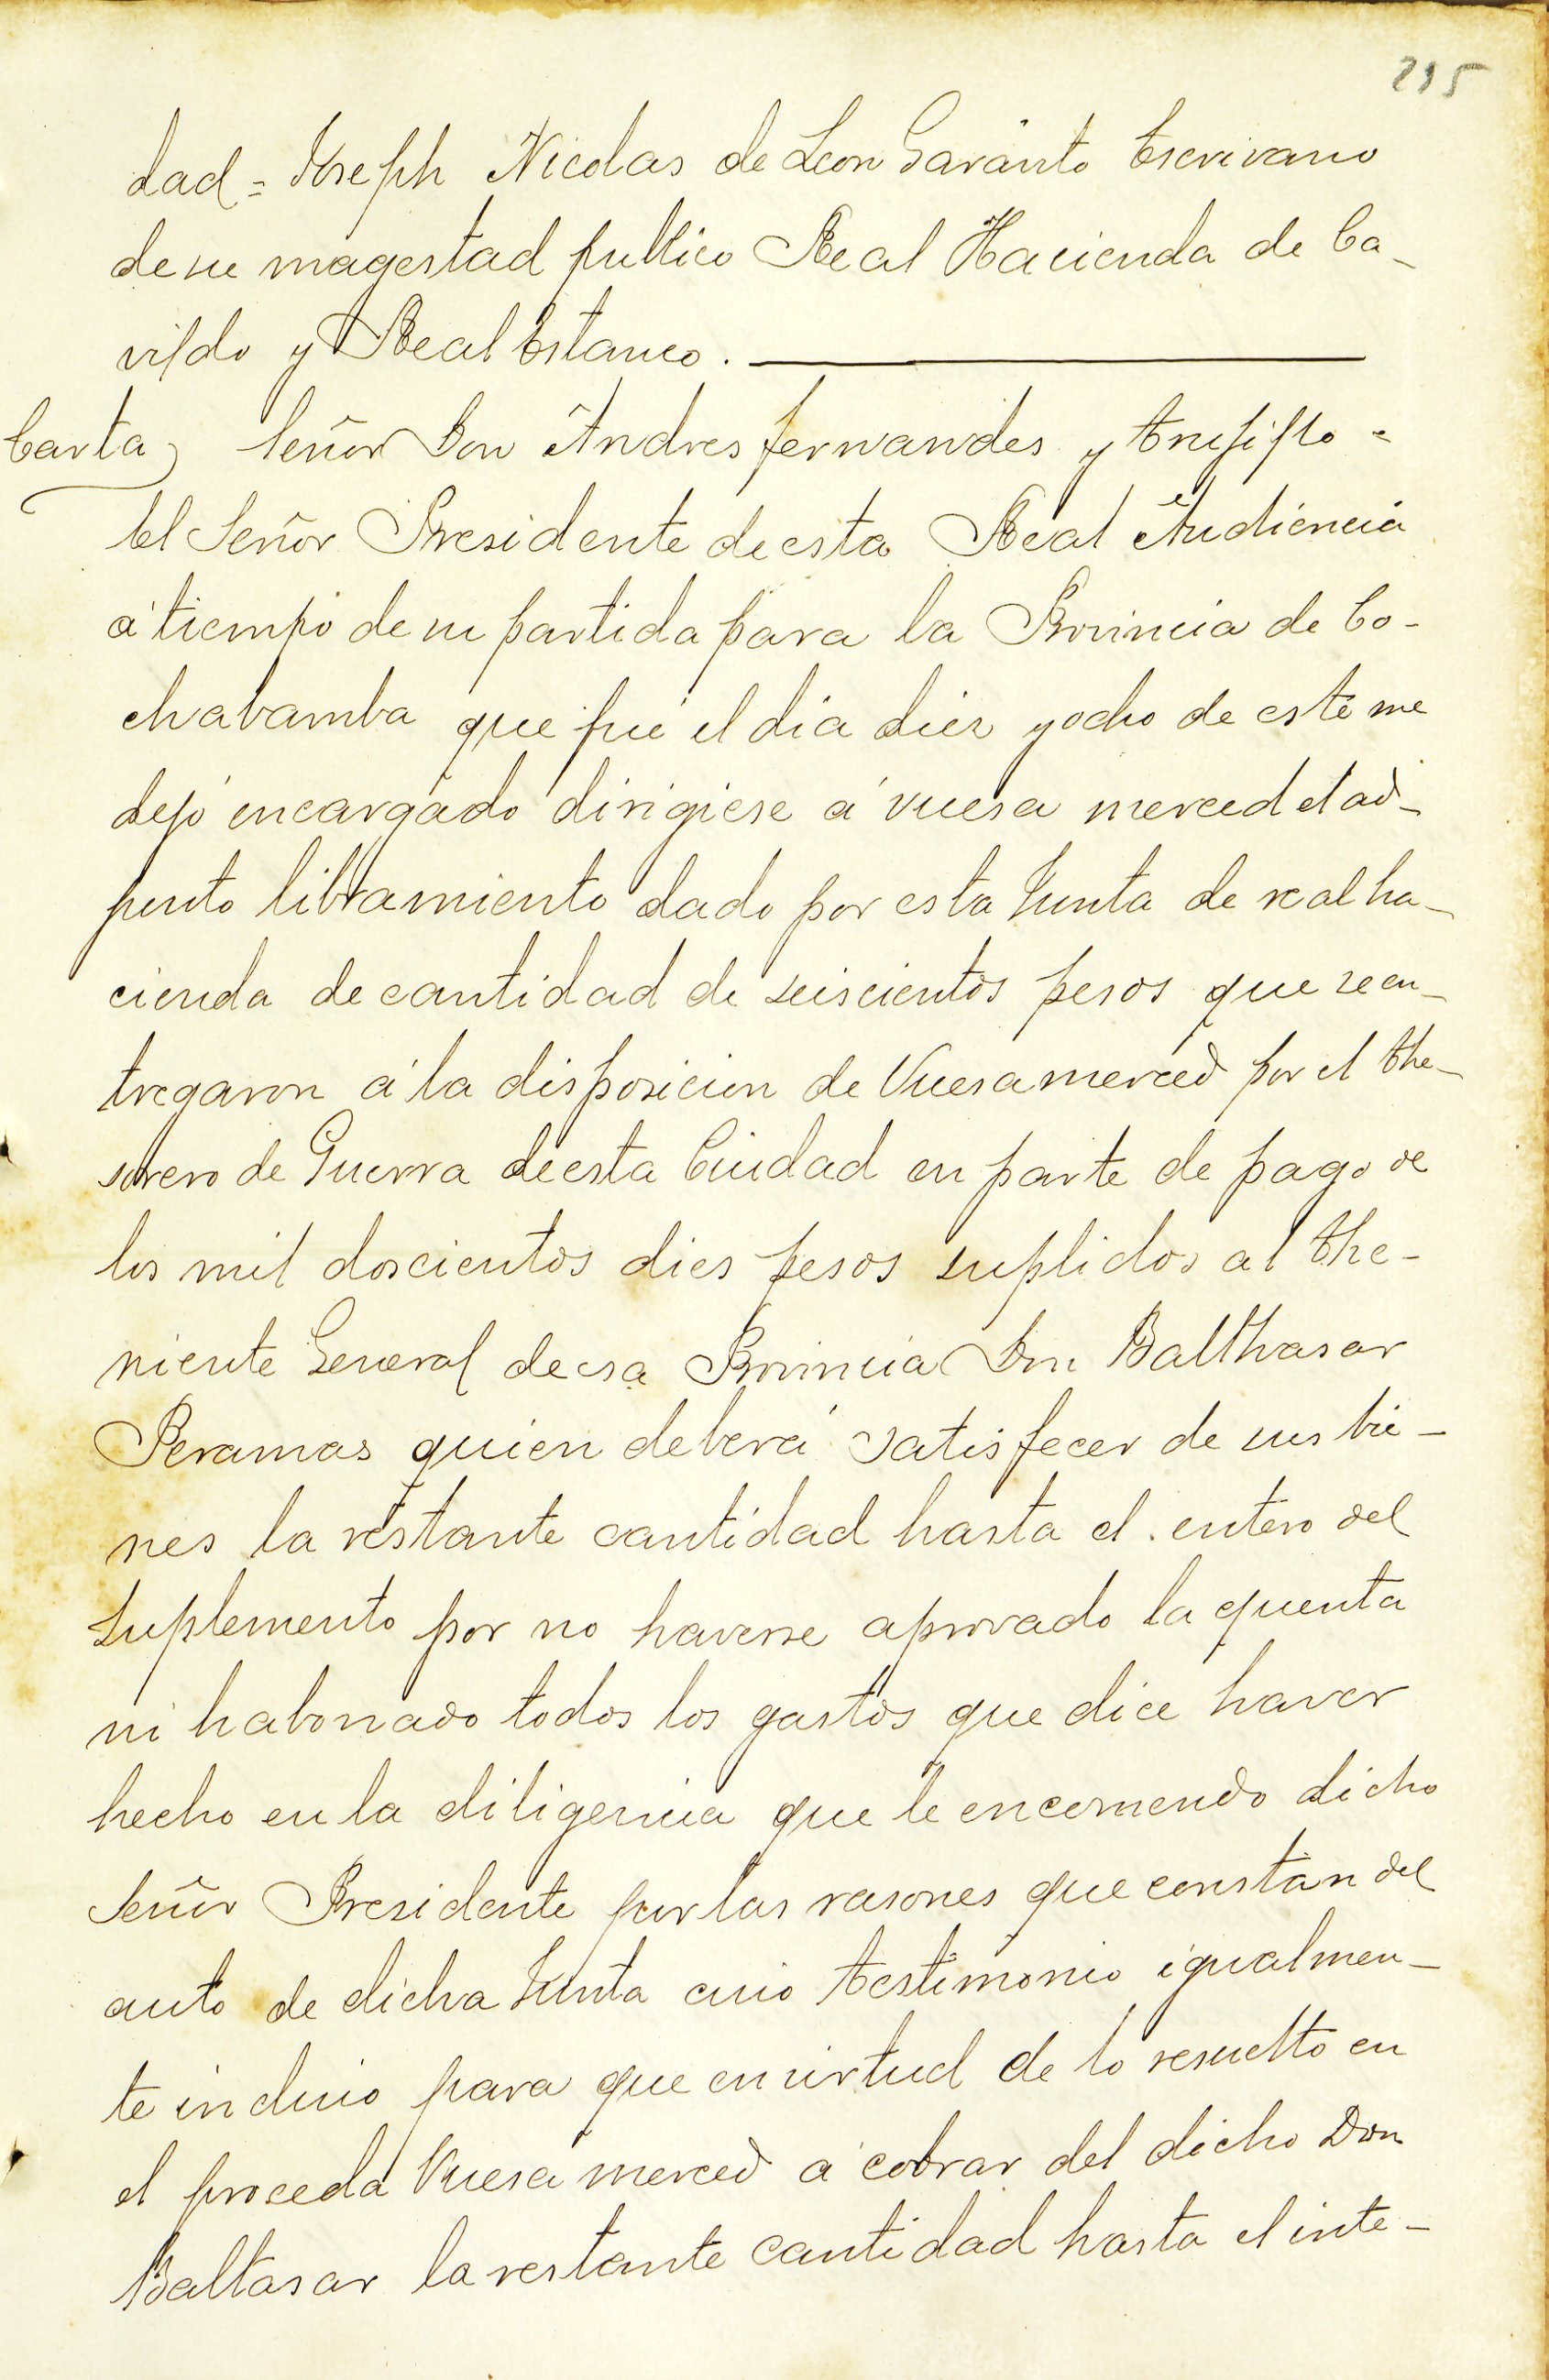 215
dad = Joseph Nicolas de Leon Garánto Escrivano
de su magestad publico Real Hacienda de Ca-
vildo y Real Estanco.
Carta
Señor Don Andres fernandes y
El Señor Presidente de esta Real Audiencia
á tiempo de su partida para la Provincia de Co-
chabamba que fué el dia diez y ocho de este me
dejó encargado dirigiese á vuesa merced el ad-
junto libramiento dado por esta Junta de real ha-
cienda de cantidad de seiscientos pesos que se en-
tregaron á la disposicion de Vuesa merced por el the-
sorero de Guerra de esta Ciudad en parte de pago de
los mil doscientos dies pesos suplidos al the-
niente General de esa Provincia Don Balthasar
Peramas quien deberá satisfecer de sus bie-
nes la restante cantidad hasta el entero del
suplemento por no haverse aprovado la quenta
ni habonado todos los gastos que dice haver
hecho en la diligencia que le encomendo dicho
Señor Presidente por las rasones que constan del
auto de dicha Junta cuio testimonio igualmen-
te incluio para que en virtud de lo resuelto en
el proceda Vuesa merced á cobrar del dicho Don
Baltasar la restante cantidad hasta el inte-